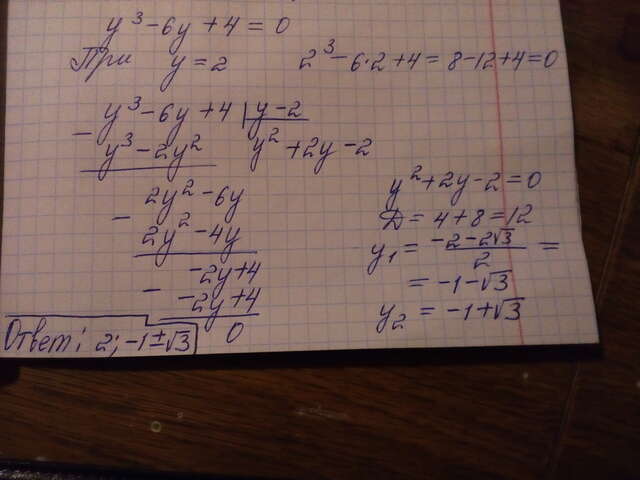 y³ - 6y + 4 = 0
При y = 2 2³ - 6·2 + 4 = 8 - 12 + 4 = 0
y³ - 6y + 4 | y - 2
- y³ - 2y² y² + 2y - 2
2y² - 6y
- 2y² - 4y
-2y + 4
- -2y + 4
0
y² + 2y - 2 = 0
D = 4 + 8 = 12
y₁ = (-2 - 2√3)/2 =
= -1 - √3
y₂ = -1 + √3
Ответ: 2; -1 ± √3